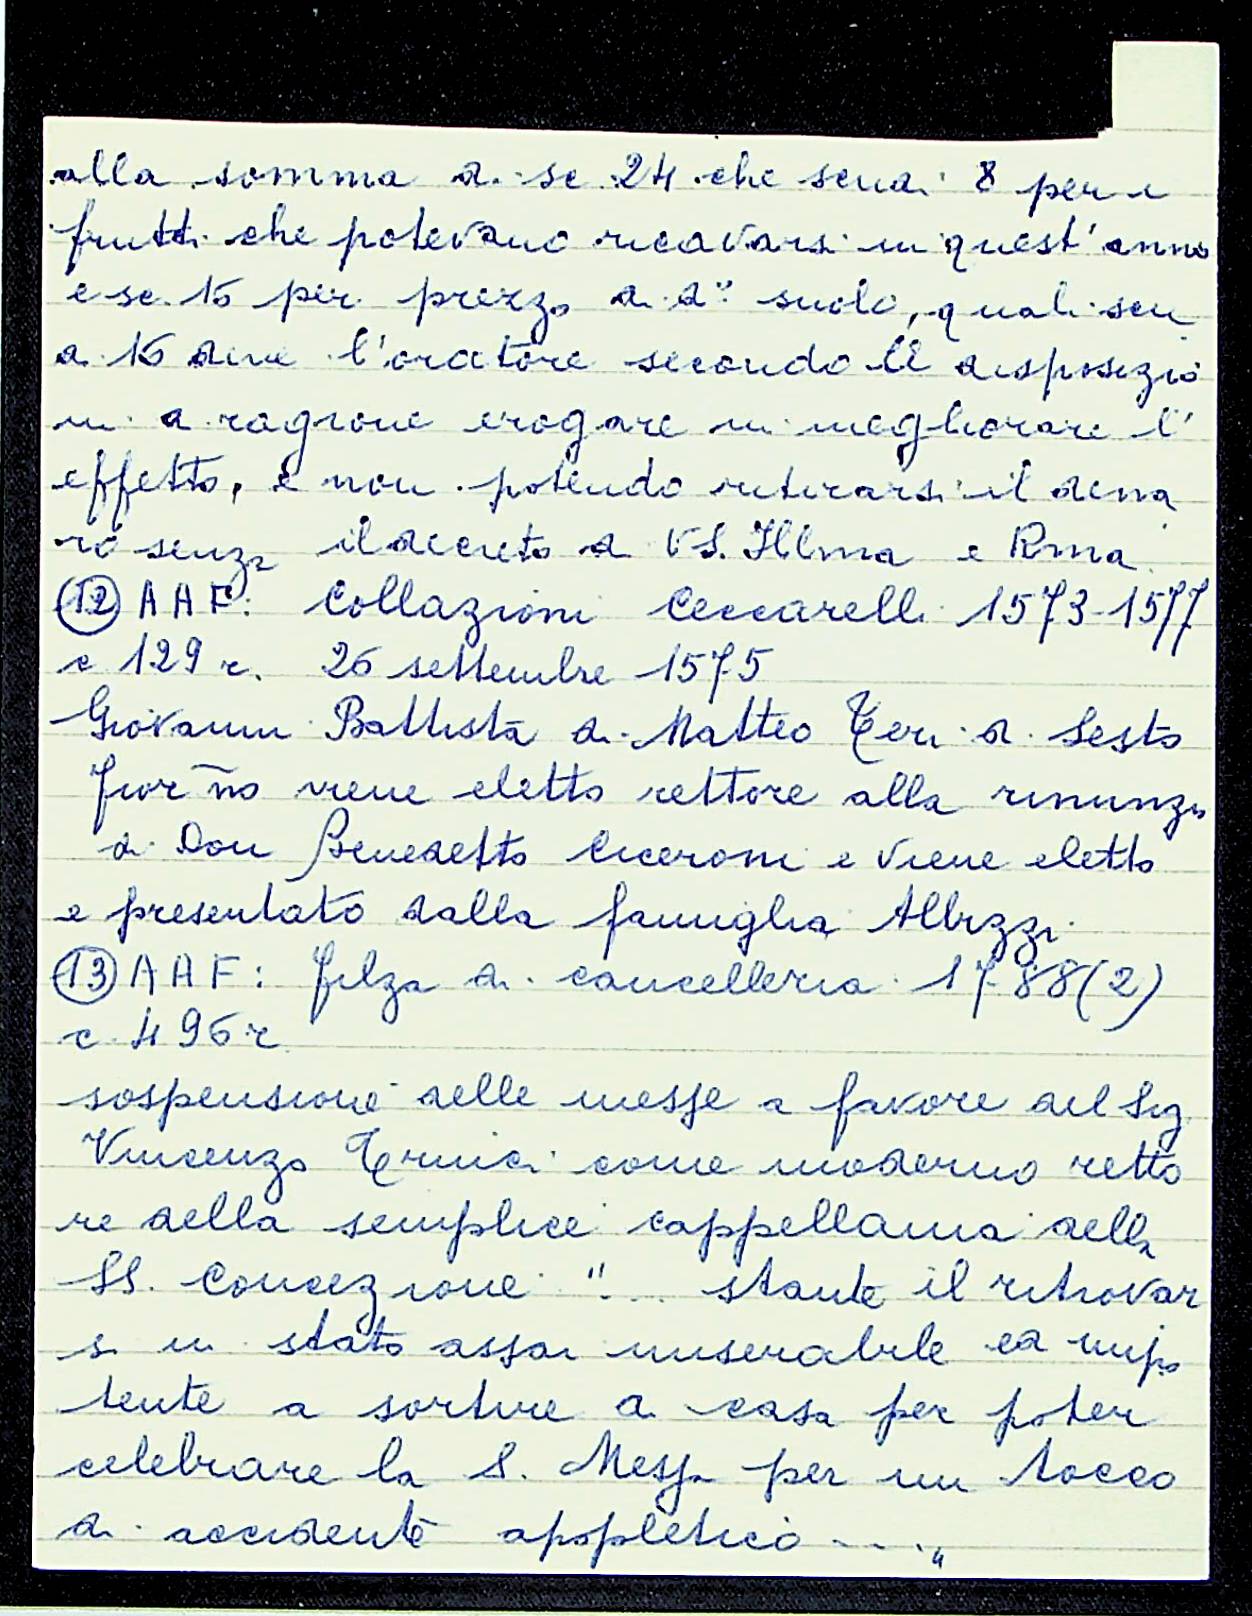 alla somma di sc. 24 che scudi 8 per i
frutti che potevano ricavarsi in quest'anno
e sc. 16 per prezzo di d.º suolo, quali scu
di 16 deve l'oratore secondo le disposizio
ni di ragione erogare in megliorare l'
effetto, e non potendo ritirarsi il dena
ro senza il decreto di VS. Illma e Rma
(12) AAF: Collazioni Ceccarelli 1573-1577
c 129 r. 26 settembre 1575
Giovanni Battista di Matteo Neri di Sesto
fior~no viene eletto rettore alla rinunzia
di Don Benedetto Ciceroni e viene eletto
e presentato dalla famiglia Albizzi.
(13) AAF: filza di cancelleria 1788(2)
c. 496 r
sospensione delle messe a favore del Sig
Vincenzo come moderno retto
re della semplice cappellania della
SS. Concezione "... stante il ritrovar
si in stato assai miserabile ed impo
tente a sortire di casa per poter
celebrare la S. Messa per un tocco
di accidente apopletico ...."